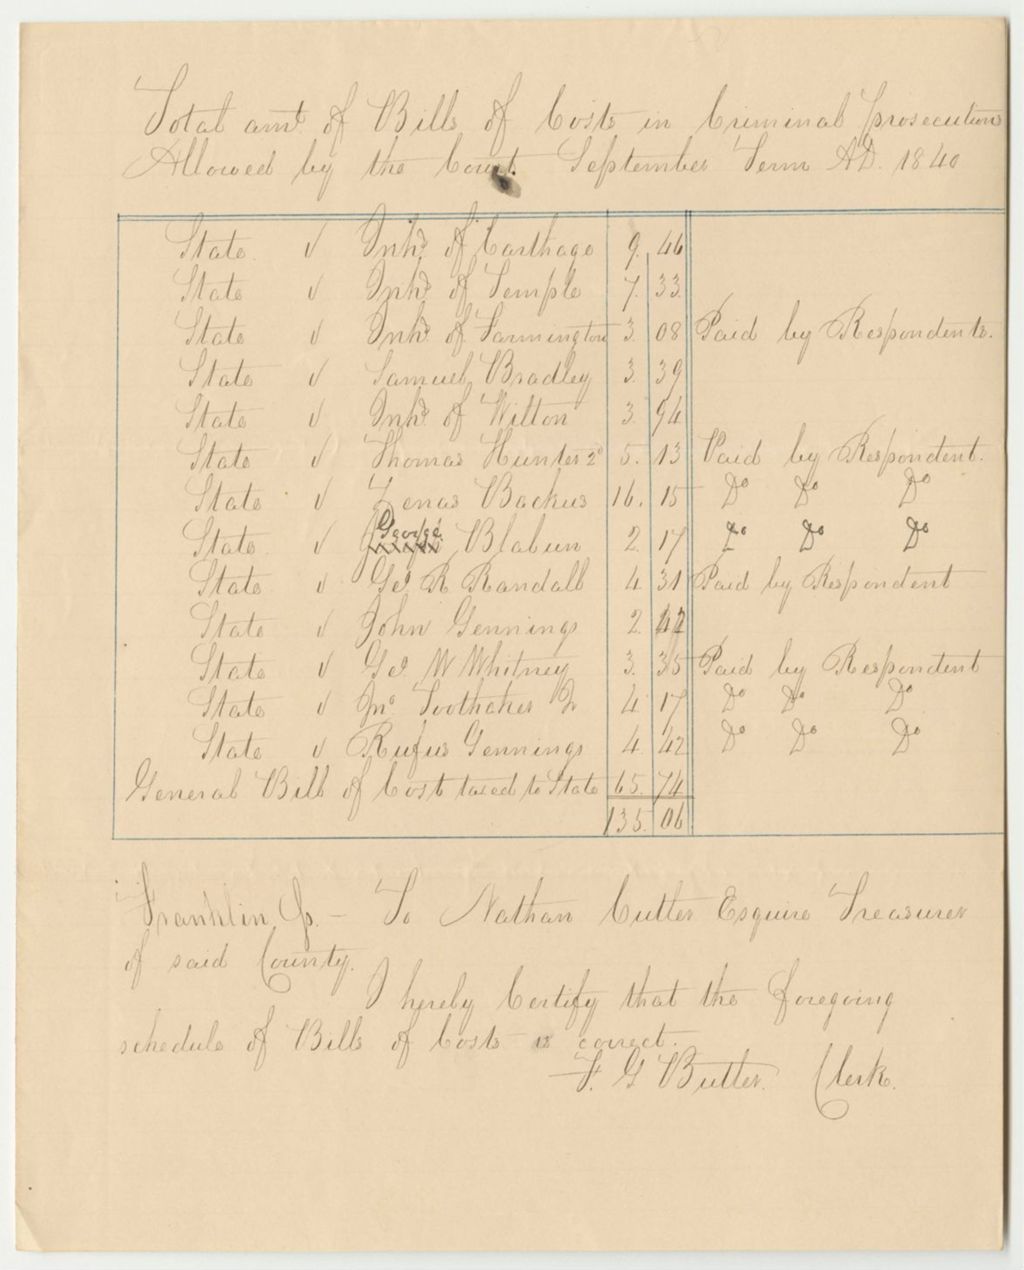 Total amt. of Bills of Costs in Criminal prosecutions
Allowed by the Court September Term A.D. 1840
State v Inhs. of Carthage 9. 46
State v Inhs. of Temple 7. 33
State v Inhs. of Farmington 3. 08 Paid by Respondents.
State v Samuel Bradley 3. 39
State v Inhs. of Wilton 3. 94
State v Thomas Hunter 2d 5. 13 Paid by Respondent.
State v Zenas Backus 16. 15 Do Do Do
State v George Blabun 2. 17 Do Do Do
State v Geo R Randall 4. 31 Paid by Respondent
State v John Gennings 2. 42
State v Geo W Whitney 3. 35 Paid by Respondent
State v Jno Toothaker Jr 4. 17 Do Do Do
State v Rufus Gennings 4. 42 Do Do Do
General Bill of Cost taxed to State 65. 74
135. 06
Franklin, ss. - To Nathan Cutler Esquire Treasurer
of said County.
I hereby Certify that the foregoing
schedule of Bills of Costs is correct.
F. G Butler. Clerk.